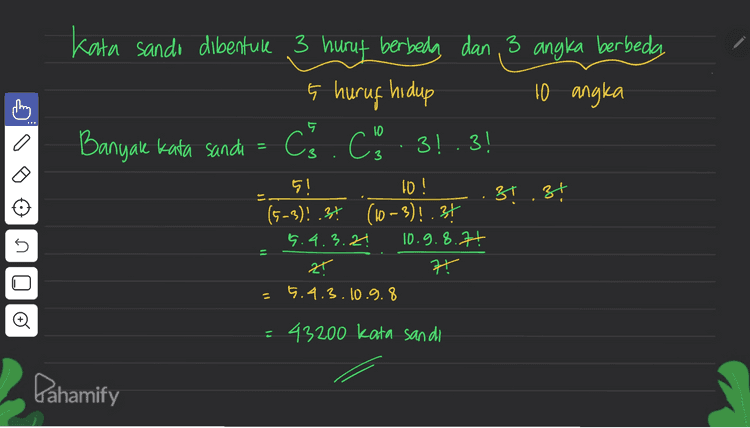 Kata sandi dibentuk 3 huruf berbeda dan 3 angka berbeda
5 huruf hidup 10 angka
Banyak kata sandi = C₃⁵ . C₃¹⁰ . 3! . 3!
= 5!/(5-3)! . 3! . 10!/(10-3)! . 3! . 3! . 3!
= 5.4.3.2!/2! . 10.9.8.7!/7!
= 5.4.3.10.9.8
= 43200 kata sandi
Pahamify